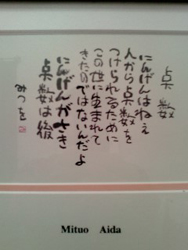 点数
にんげんはねぇ
人から点数を
つけられるために
この世に生まれて
きたのではないんだよ
にんげんがさき
点数は後
みつを
Mituo Aida